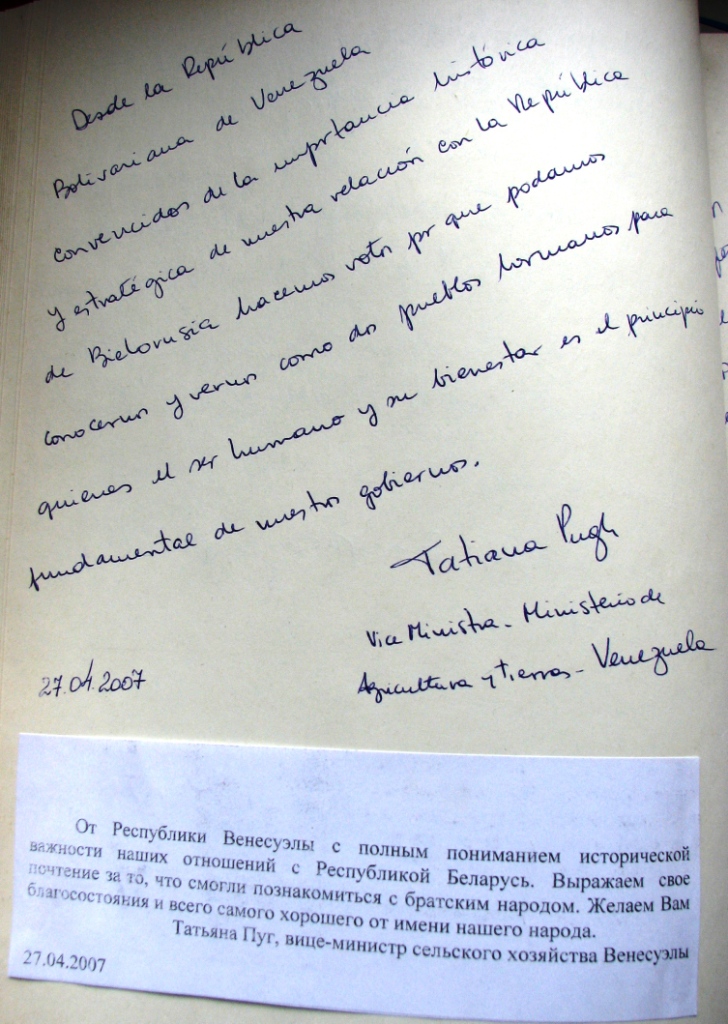 Desde la República
Bolivariana de Venezuela
convencidos de la importancia histórica
y estratégica de nuestra relación con la República
de Bielorusia hacemos votos por que podamos
conocernos y vernos como dos pueblos hermanos para
quienes el ser humano y su bienestar es el principio
fundamental de nuestros gobiernos.
Tatiana Pugh
Vice Ministra - Ministerio de
Agricultura y Tierras - Venezuela
27.04.2007
От Республики Венесуэлы с полным пониманием исторической
важности наших отношений с Республикой Беларусь. Выражаем свое
почтение за то, что смогли познакомиться с братским народом. Желаем Вам
благосостояния и всего самого хорошего от имени нашего народа.
Татьяна Пуг, вице-министр сельского хозяйства Венесуэлы
27.04.2007